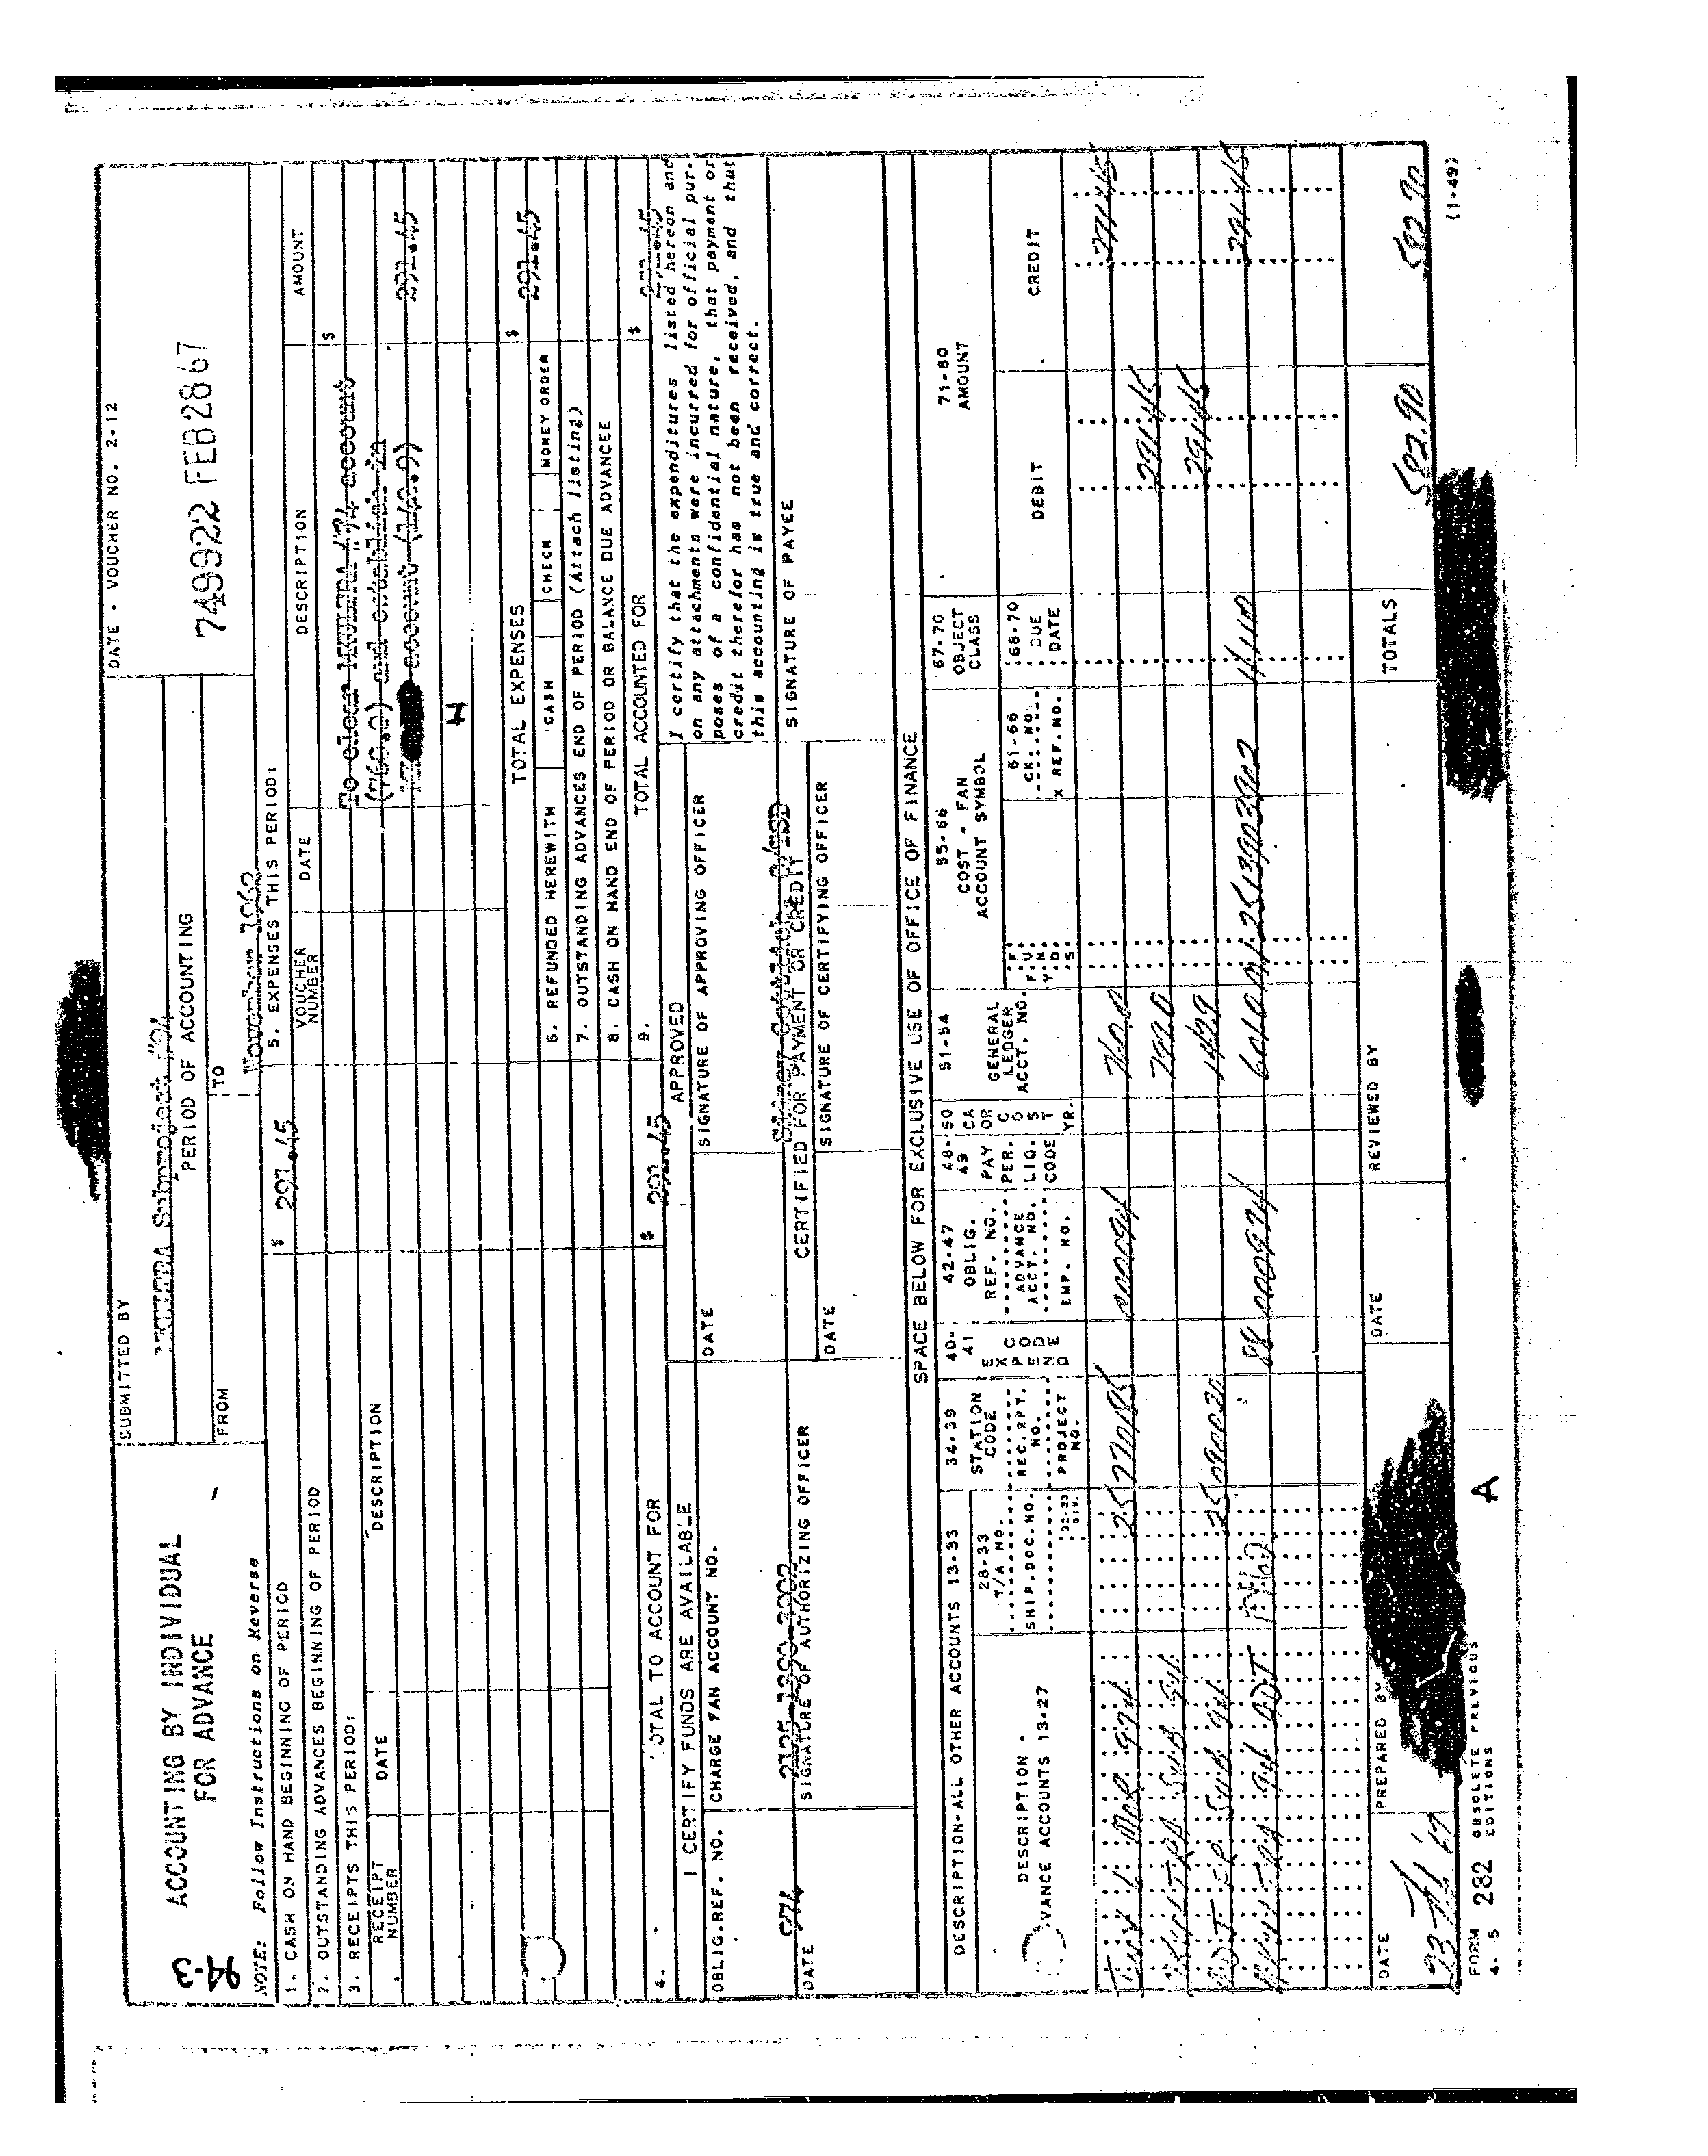 94-3
ACCOUNTING BY INDIVIDUAL
FOR ADVANCE
SUBMITTED BY
MKULTRA Subproject #94
PERIOD OF ACCOUNTING
FROM
TO
November 1962
DATE - VOUCHER NO. 2-12
749922 FEB 28 67
NOTE: Follow Instructions on Reverse
1. CASH ON HAND BEGINNING OF PERIOD
$ 291.45
2. OUTSTANDING ADVANCES BEGINNING OF PERIOD
3. RECEIPTS THIS PERIOD:
RECEIPT NUMBER
DATE
DESCRIPTION
5. EXPENSES THIS PERIOD:
VOUCHER NUMBER
DATE
DESCRIPTION
AMOUNT
$
To clear MKULTRA #94 account
(760.0) and establish in
account (142.9)
291.45
TOTAL EXPENSES
$ 291.45
6. REFUNDED HEREWITH
CASH
CHECK
MONEY ORDER
7. OUTSTANDING ADVANCES END OF PERIOD (Attach listing)
8. CASH ON HAND END OF PERIOD OR BALANCE DUE ADVANCEE
4. TOTAL TO ACCOUNT FOR
$ 291.45
9. TOTAL ACCOUNTED FOR
$ 291.45
I CERTIFY FUNDS ARE AVAILABLE
OBLIG.REF. NO.
CHARGE FAN ACCOUNT NO.
974
2125-1390-3902
DATE
SIGNATURE OF AUTHORIZING OFFICER
APPROVED
DATE
SIGNATURE OF APPROVING OFFICER
CERTIFIED FOR PAYMENT OR CREDIT
DATE
SIGNATURE OF CERTIFYING OFFICER
I certify that the expenditures listed hereon and
on any attachments were incurred for official pur-
poses of a confidential nature, that payment or
credit therefor has not been received, and that
this accounting is true and correct.
SIGNATURE OF PAYEE
SPACE BELOW FOR EXCLUSIVE USE OF OFFICE OF FINANCE
DESCRIPTION-ALL OTHER ACCOUNTS 13-33
DESCRIPTION -
VANCE ACCOUNTS 13-27
28-33
T/A NO.
SHIP.DOC.NO.
32-33
DIV.
34-39
STATION CODE
REC.RPT. NO.
PROJECT NO.
40-41
EXPEND CODE
42-47
OBLIG. REF. NO.
ADVANCE ACCT. NO.
EMP. NO.
48-49
PAY PER.
LIQ. CODE
50
CA OR COST YR.
51-54
GENERAL LEDGER ACCT. NO.
55-66
COST - FAN
ACCOUNT SYMBOL
F.Y.
FUNDS
61-66
CK. NO.
X REF. NO.
67-70
OBJECT CLASS
68-70
DUE DATE
71-80
AMOUNT
DEBIT
CREDIT
760.0
291.45
291.45
142.9
291.45
291.45
TOTALS
582.90
582.90
DATE
PREPARED BY
DATE
REVIEWED BY
FORM 282
4-5
OBSOLETE PREVIOUS EDITIONS
A
(1-49)